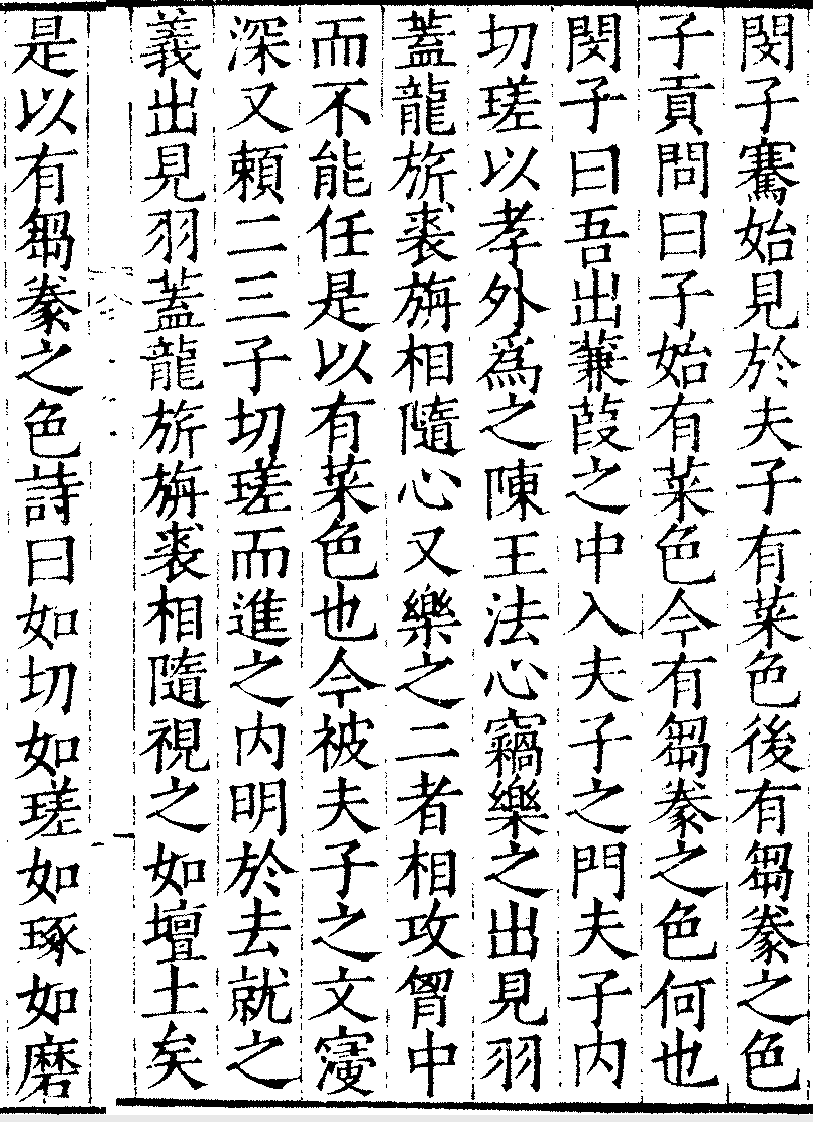 閔子騫始見於夫子有菜色後有芻豢之色
子貢問曰子始有菜色今有芻豢之色何也
閔子曰吾出蒹葭之中入夫子之門夫子內
切瑳以孝外爲之陳王法心竊樂之出見羽
蓋龍旂裘旃相隨心又樂之二者相攻胷中
而不能任是以有菜色也今被夫子之文寖
深又賴二三子切瑳而進之內明於去就之
義出見羽蓋龍旂旃裘相隨視之如壇土矣
是以有芻豢之色詩曰如切如瑳如琢如磨